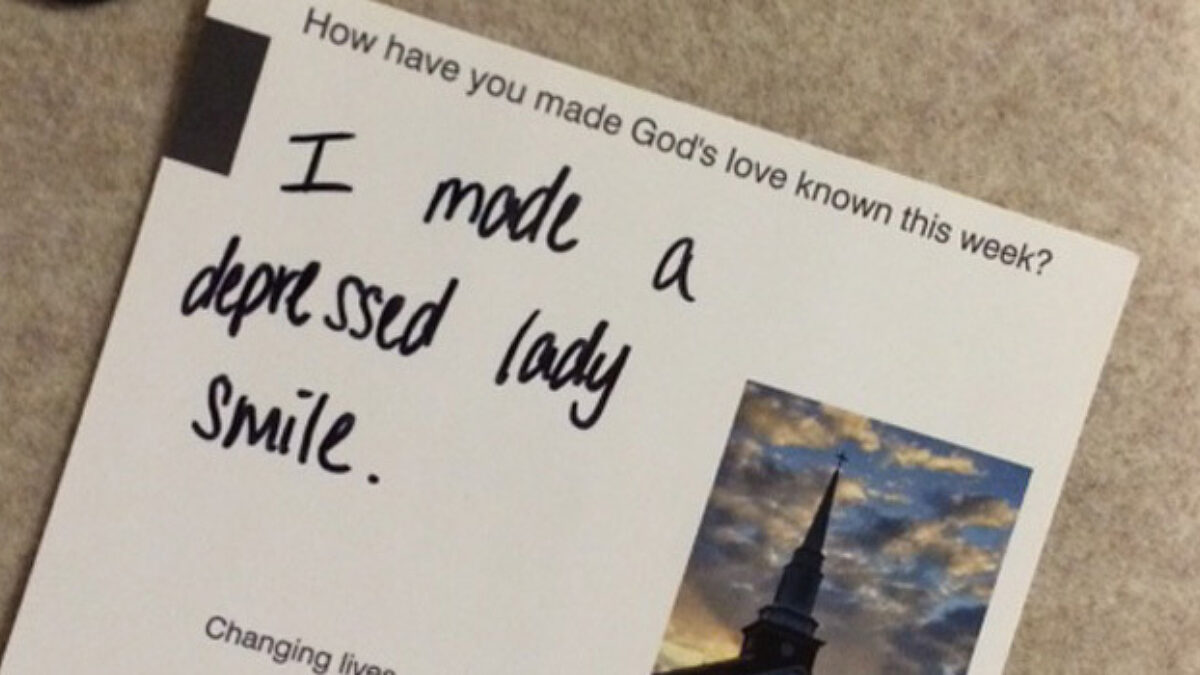 How have you made God's love known this week?
I made a
depressed lady
smile.
Changing lives